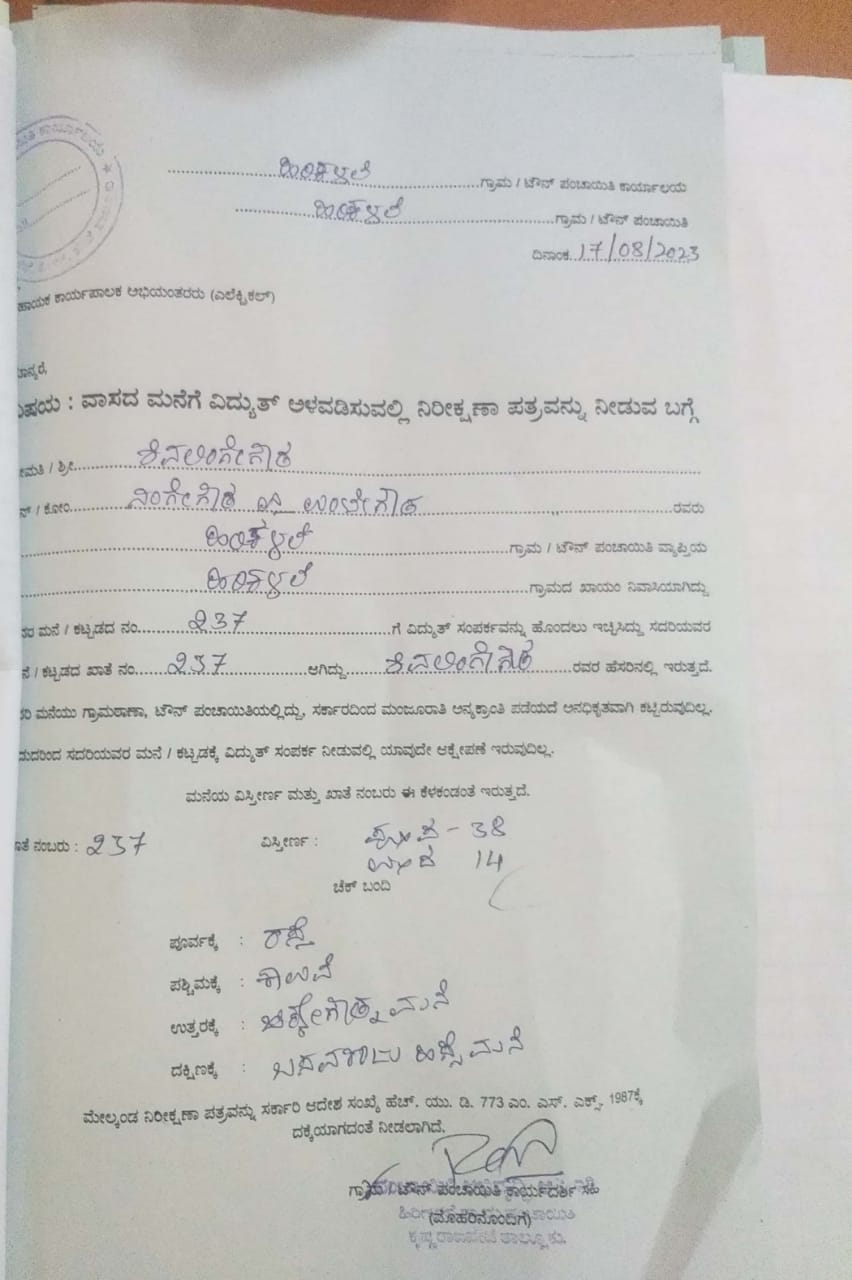 ಹಿರಿಕಳಲೆ ಗ್ರಾಮ / ಟೌನ್ ಪಂಚಾಯಿತಿ ಕಾರ್ಯಾಲಯ
ಹಿರಿಕಳಲೆ ಗ್ರಾಮ / ಟೌನ್ ಪಂಚಾಯಿತಿ
ದಿನಾಂಕ. 17/08/2023
ಹಾಯಕ ಕಾರ್ಯಪಾಲಕ ಅಭಿಯಂತರರು (ಎಲೆಕ್ಟ್ರಿಕಲ್)
ಮಾನ್ಯರೆ,
ವಿಷಯ : ವಾಸದ ಮನೆಗೆ ವಿದ್ಯುತ್ ಅಳವಡಿಸುವಲ್ಲಿ ನಿರೀಕ್ಷಣಾ ಪತ್ರವನ್ನು ನೀಡುವ ಬಗ್ಗೆ
ಮತಿ / ಶ್ರೀ. ಶಿವಲಿಂಗೇಗೌಡ
ನ್ / ಕೋಂ. ನಿಂಗೇಗೌಡ ರವರು
ಹಿರಿಕಳಲೆ ಗ್ರಾಮ / ಟೌನ್ ಪಂಚಾಯಿತಿ ವ್ಯಾಪ್ತಿಯ
ಹಿರಿಕಳಲೆ ಗ್ರಾಮದ ಖಾಯಂ ನಿವಾಸಿಯಾಗಿದ್ದು
ರ ಮನೆ / ಕಟ್ಟಡದ ನಂ. 237 ಗೆ ವಿದ್ಯುತ್ ಸಂಪರ್ಕವನ್ನು ಹೊಂದಲು ಇಚ್ಛಿಸಿದ್ದು ಸದರಿಯವರ
ನೆ / ಕಟ್ಟಡದ ಖಾತೆ ನಂ. 237 ಆಗಿದ್ದು. ಶಿವಲಿಂಗೇಗೌಡ ರವರ ಹೆಸರಿನಲ್ಲಿ ಇರುತ್ತದೆ.
ರಿ ಮನೆಯು ಗ್ರಾಮಠಾಣಾ, ಟೌನ್ ಪಂಚಾಯಿತಿಯಲ್ಲಿದ್ದು, ಸರ್ಕಾರದಿಂದ ಮಂಜೂರಾತಿ ಅನ್ಯಕ್ರಾಂತಿ ಪಡೆಯದೆ ಅನಧಿಕೃತವಾಗಿ ಕಟ್ಟಿರುವುದಿಲ್ಲ.
ದುದರಿಂದ ಸದರಿಯವರ ಮನೆ / ಕಟ್ಟಡಕ್ಕೆ ವಿದ್ಯುತ್ ಸಂಪರ್ಕ ನೀಡುವಲ್ಲಿ ಯಾವುದೇ ಆಕ್ಷೇಪಣೆ ಇರುವುದಿಲ್ಲ.
ಮನೆಯ ವಿಸ್ತೀರ್ಣ ಮತ್ತು ಖಾತೆ ನಂಬರು ಈ ಕೆಳಕಂಡಂತೆ ಇರುತ್ತದೆ.
ಾತೆ ನಂಬರು : 237 ವಿಸ್ತೀರ್ಣ : - 38
14
ಚೆಕ್ ಬಂದಿ
ಪೂರ್ವಕ್ಕೆ : ರಸ್ತೆ
ಪಶ್ಚಿಮಕ್ಕೆ : ಕಾಲುವೆ
ಉತ್ತರಕ್ಕೆ : ಮನೆ
ದಕ್ಷಿಣಕ್ಕೆ : ಮನೆ
ಮೇಲ್ಕಂಡ ನಿರೀಕ್ಷಣಾ ಪತ್ರವನ್ನು ಸರ್ಕಾರಿ ಆದೇಶ ಸಂಖ್ಯೆ ಹೆಚ್. ಯು. ಡಿ. 773 ಎಂ. ಎಸ್. ಎಕ್ಸ್. 1987ಕ್ಕೆ
ದಕ್ಕೆಯಾಗದಂತೆ ನೀಡಲಾಗಿದೆ.
ಗ್ರಾಮ / ಟೌನ್ ಪಂಚಾಯಿತಿ ಕಾರ್ಯದರ್ಶಿ ಸಹಿ
(ಮೊಹರಿನೊಂದಿಗೆ)
ಕೃಷ್ಣರಾಜಪೇಟೆ ತಾಲ್ಲೂಕು.